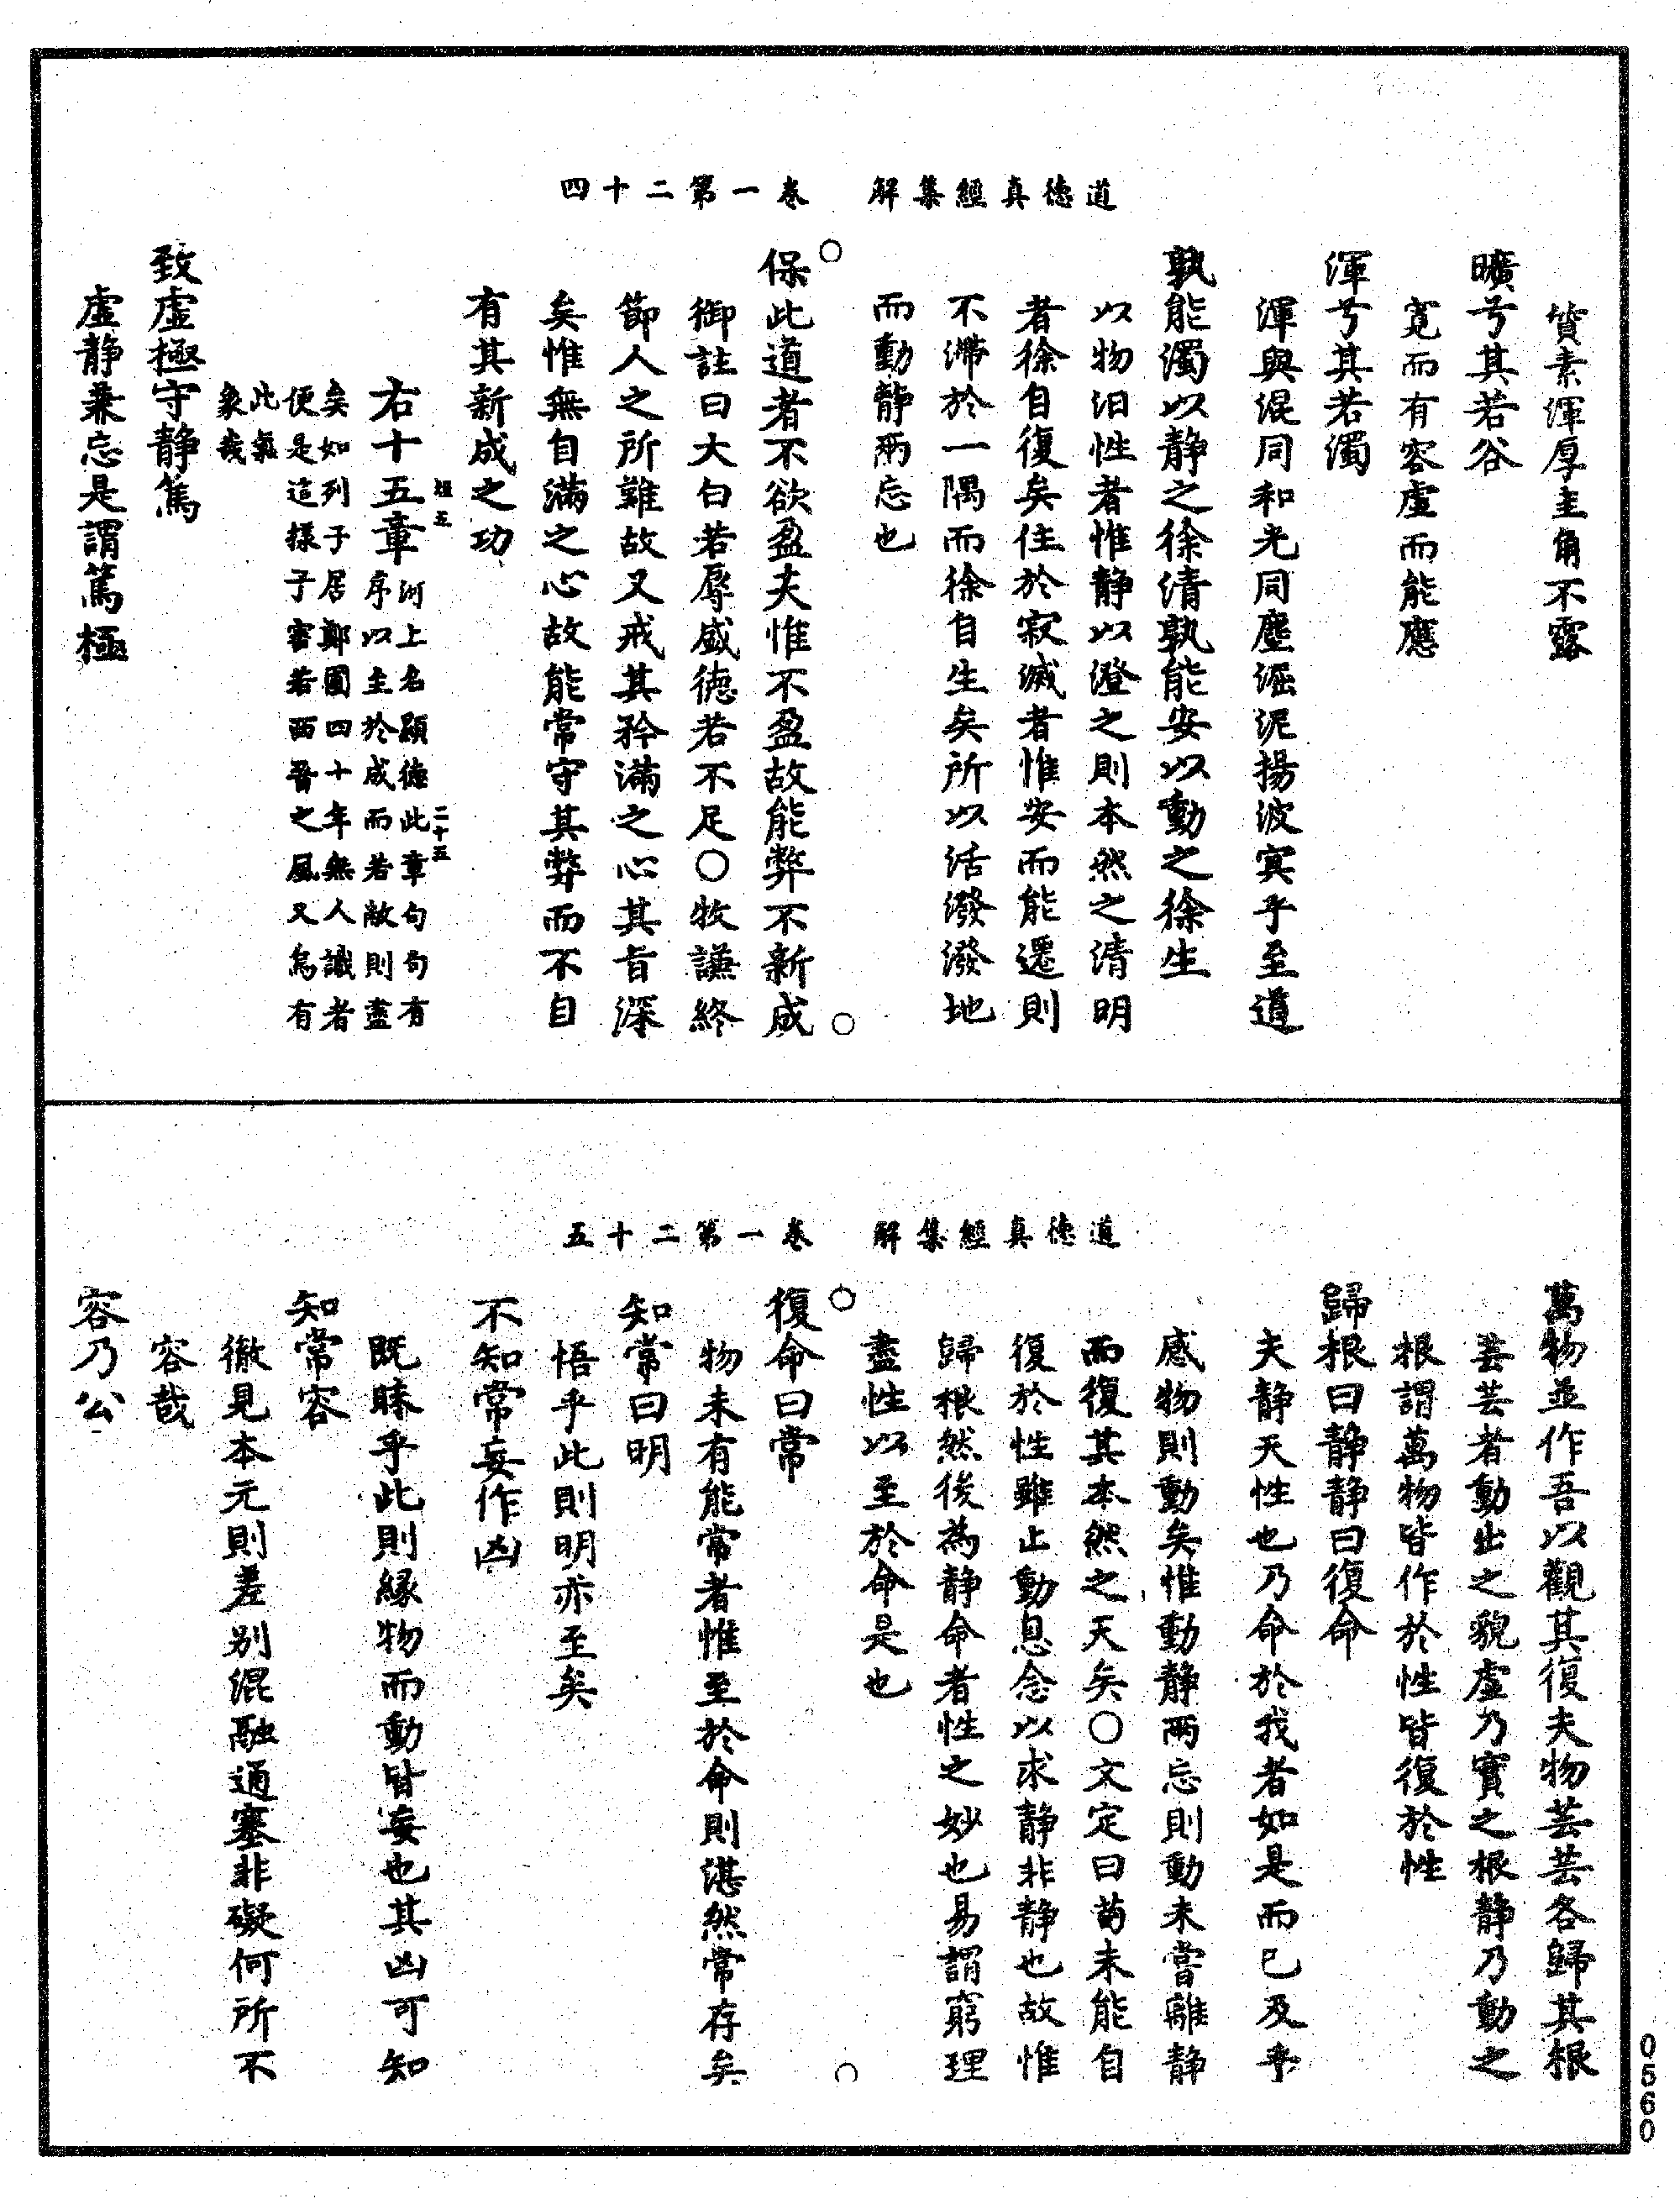 道德真經集解　卷一第二十四
質素渾厚圭角不露
曠兮其若谷
寬而有容虛而能應
渾兮其若濁
渾與混同和光同塵淈泥揚波寘乎至道
孰能濁以靜之徐清孰能安以動之徐生
以物汨性者惟靜以澄之則本然之清明
者徐自復矣住於寂滅者惟安而能遷則
不滯於一隅而徐自生矣所以活潑潑地
而動靜兩忘也
保此道者不欲盈夫惟不盈故能弊不新成
御註曰大白若辱盛德若不足○牧謙終
節人之所難故又戒其矜滿之心其旨深
矣惟無自滿之心故能常守其弊而不自
有其新成之功
右十五章河上名顯德此章句句有
序以主於成而若敵則盡
矣如列子居鄭圃四十年無人識者
便是這樣子審若西晉之風又烏有
此氣
象哉
致虛極守靜篤
虛靜兼忘是謂篤極
道德真經集解　卷一第二十五
萬物並作吾以觀其復夫物芸芸各歸其根
芸芸者動出之貌虛乃實之根靜乃動之
根謂萬物皆作於性皆復於性
歸根曰靜靜曰復命
夫靜天性也乃命於我者如是而已及乎
感物則動矣惟動靜兩忘則動未嘗離靜
而復其本然之天矣○文定曰苟未能自
復於性雖止動息念以求靜非靜也故惟
歸根然後為靜命者性之妙也易謂窮理
盡性以至於命是也
復命曰常
物未有能常者惟至於命則湛然常存矣
知常曰明
悟乎此則明亦至矣
不知常妄作凶
既昧乎此則緣物而動皆妄也其凶可知
知常容
徹見本元則差別混融通塞非礙何所不
容哉
容乃公
0560